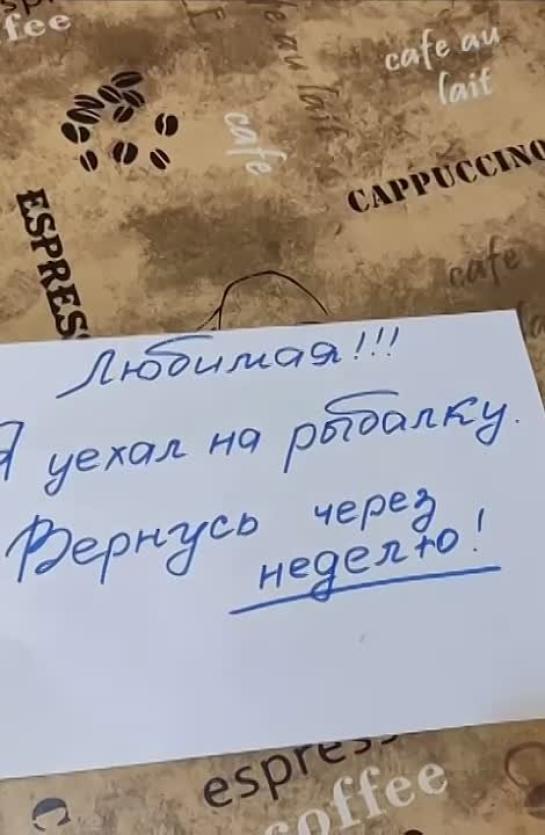 ffee
cafe au
lait
cafe au lait
cafe
CAPPUCCINO
ESPRES
cafe
Любимая!!!
Я уехал на рыбалку.
Вернусь через
неделю!
espress
coffee